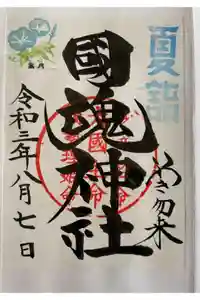 夏詣
いわき勿来
國魂神社
令和三年八月七日
葉月